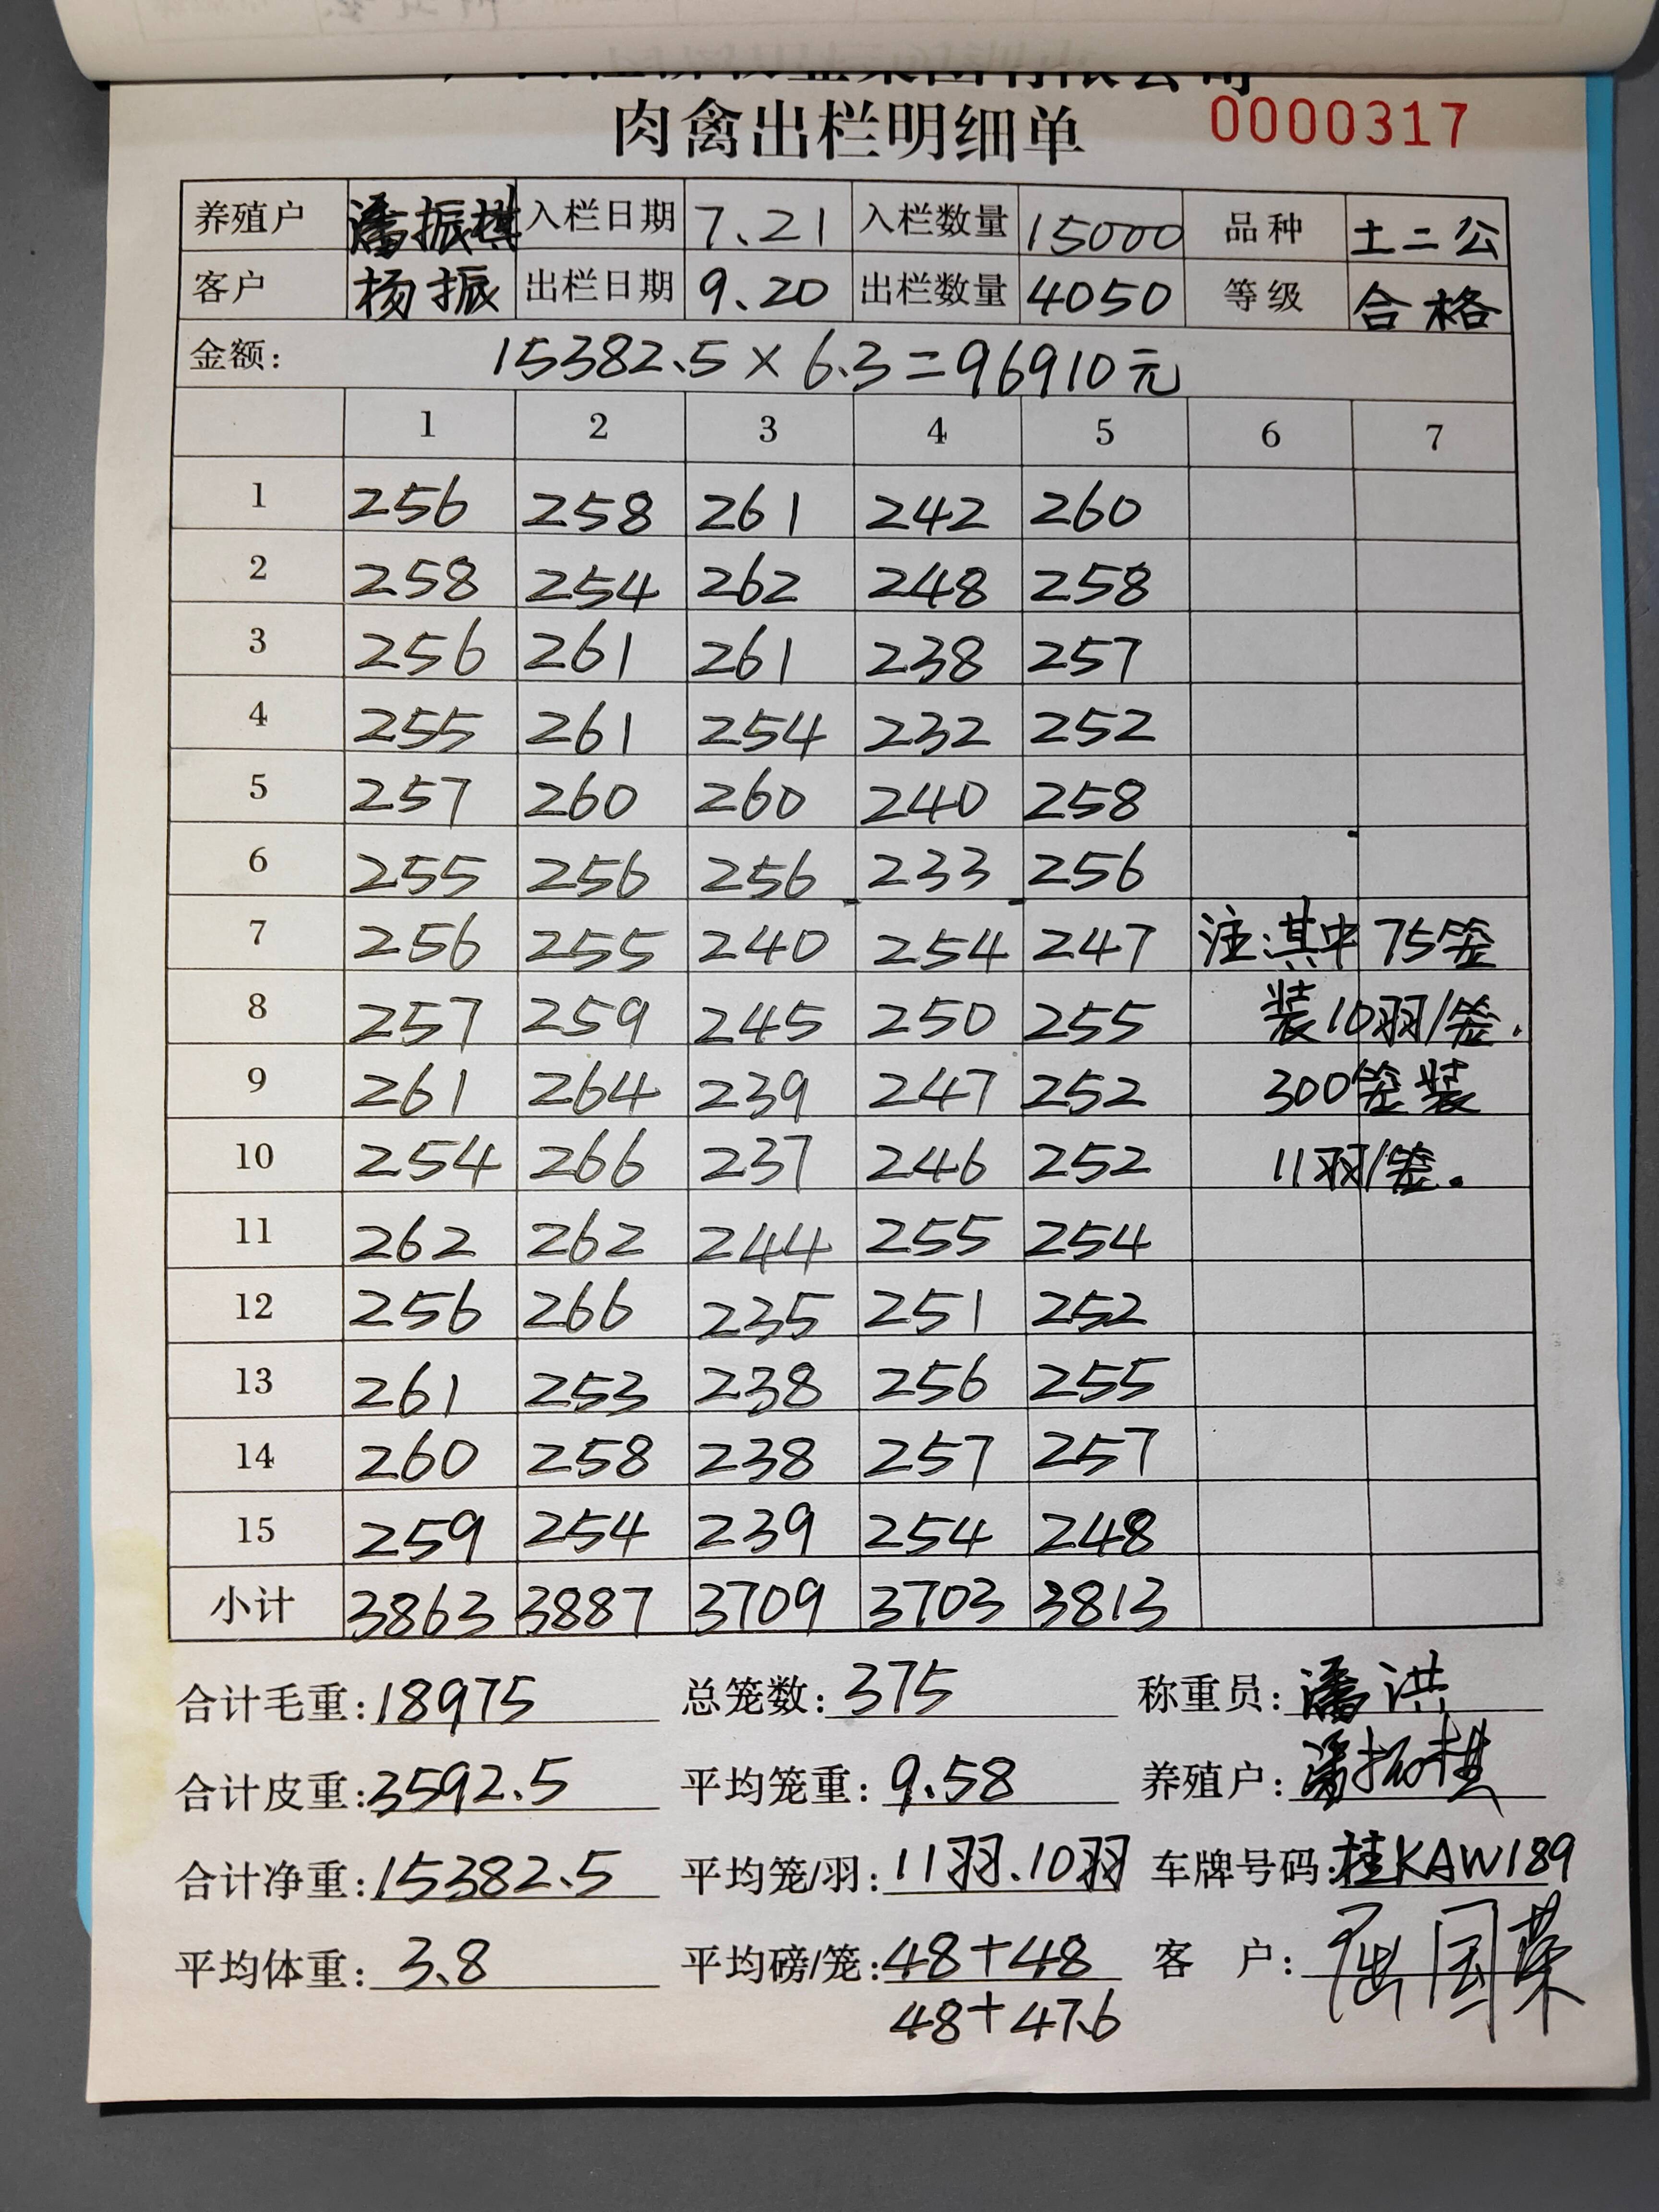 集团有限公司
肉禽出栏明细单 0000317
养殖户 潘振棋 入栏日期 7.21 入栏数量 15000 品种 土二公
客户 杨振 出栏日期 9.20 出栏数量 4050 等级 合格
金额: 15382.5×6.3=96910元
1 2 3 4 5 6 7
1 256 258 261 242 260
2 258 254 262 248 258
3 256 261 261 238 257
4 255 261 254 232 252
5 257 260 260 240 258
6 255 256 256 233 256
7 256 255 240 254 247 注:其中75笼
8 257 259 245 250 255 装10羽/笼.
9 261 264 239 247 252 300笼装
10 254 266 237 246 252 11羽/笼.
11 262 262 244 255 254
12 256 266 235 251 252
13 261 253 238 256 255
14 260 258 238 257 257
15 259 254 239 254 248
小计 3863 3887 3709 3703 3813
合计毛重:18975 总笼数:375 称重员:潘洪
合计皮重:3592.5 平均笼重:9.58 养殖户:潘振棋
合计净重:15382.5 平均笼/羽:11羽.10羽 车牌号码:桂KAW189
平均体重:3.8 平均磅/笼:48+48 客 户: 国荣
48+47.6